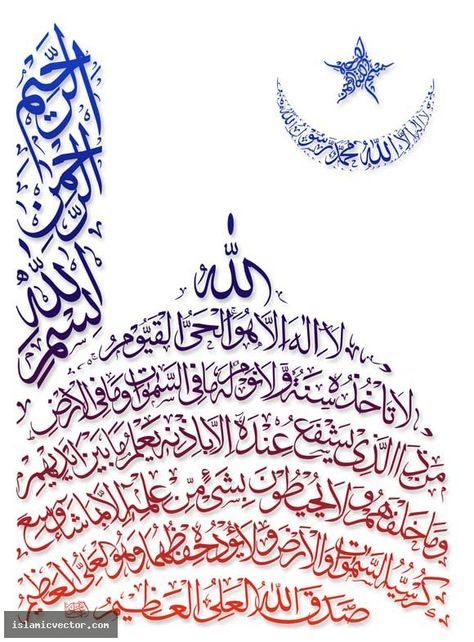 بسم الله الرحمن الرحيم
لا اله الا الله محمد رسول الله
الله
لا اله الا هو الحَىُّ القَيُّوم
لا تَاخُذُهٗ سِنَةٌ وَّلا نَوم لَهٗ مَا فِى السَّمٰوٰت وَمَا فِى الاَرْض
مَن ذَا الَّذِى يَشفَع عِندَهٗ اِلَّا بِاذنِهٖ يَعلَم مَا بَينَ اَيدِيهِم
وَمَا خَلفَهُم وَلا يُحِيطُونَ بِشَىءٍ مِّن عِلمِهٖ اِلَّا بِمَا شَاءَ وَسِعَ
كُرسِيُّهُ السَّمٰوٰت وَالاَرْض وَلا يَؤُدُهٗ حِفظُهُمَا وَهُوَ العَلِىُّ العَظِيم
صَدَقَ اللهُ العَلِىُّ العَظِيم
islamicvector.com